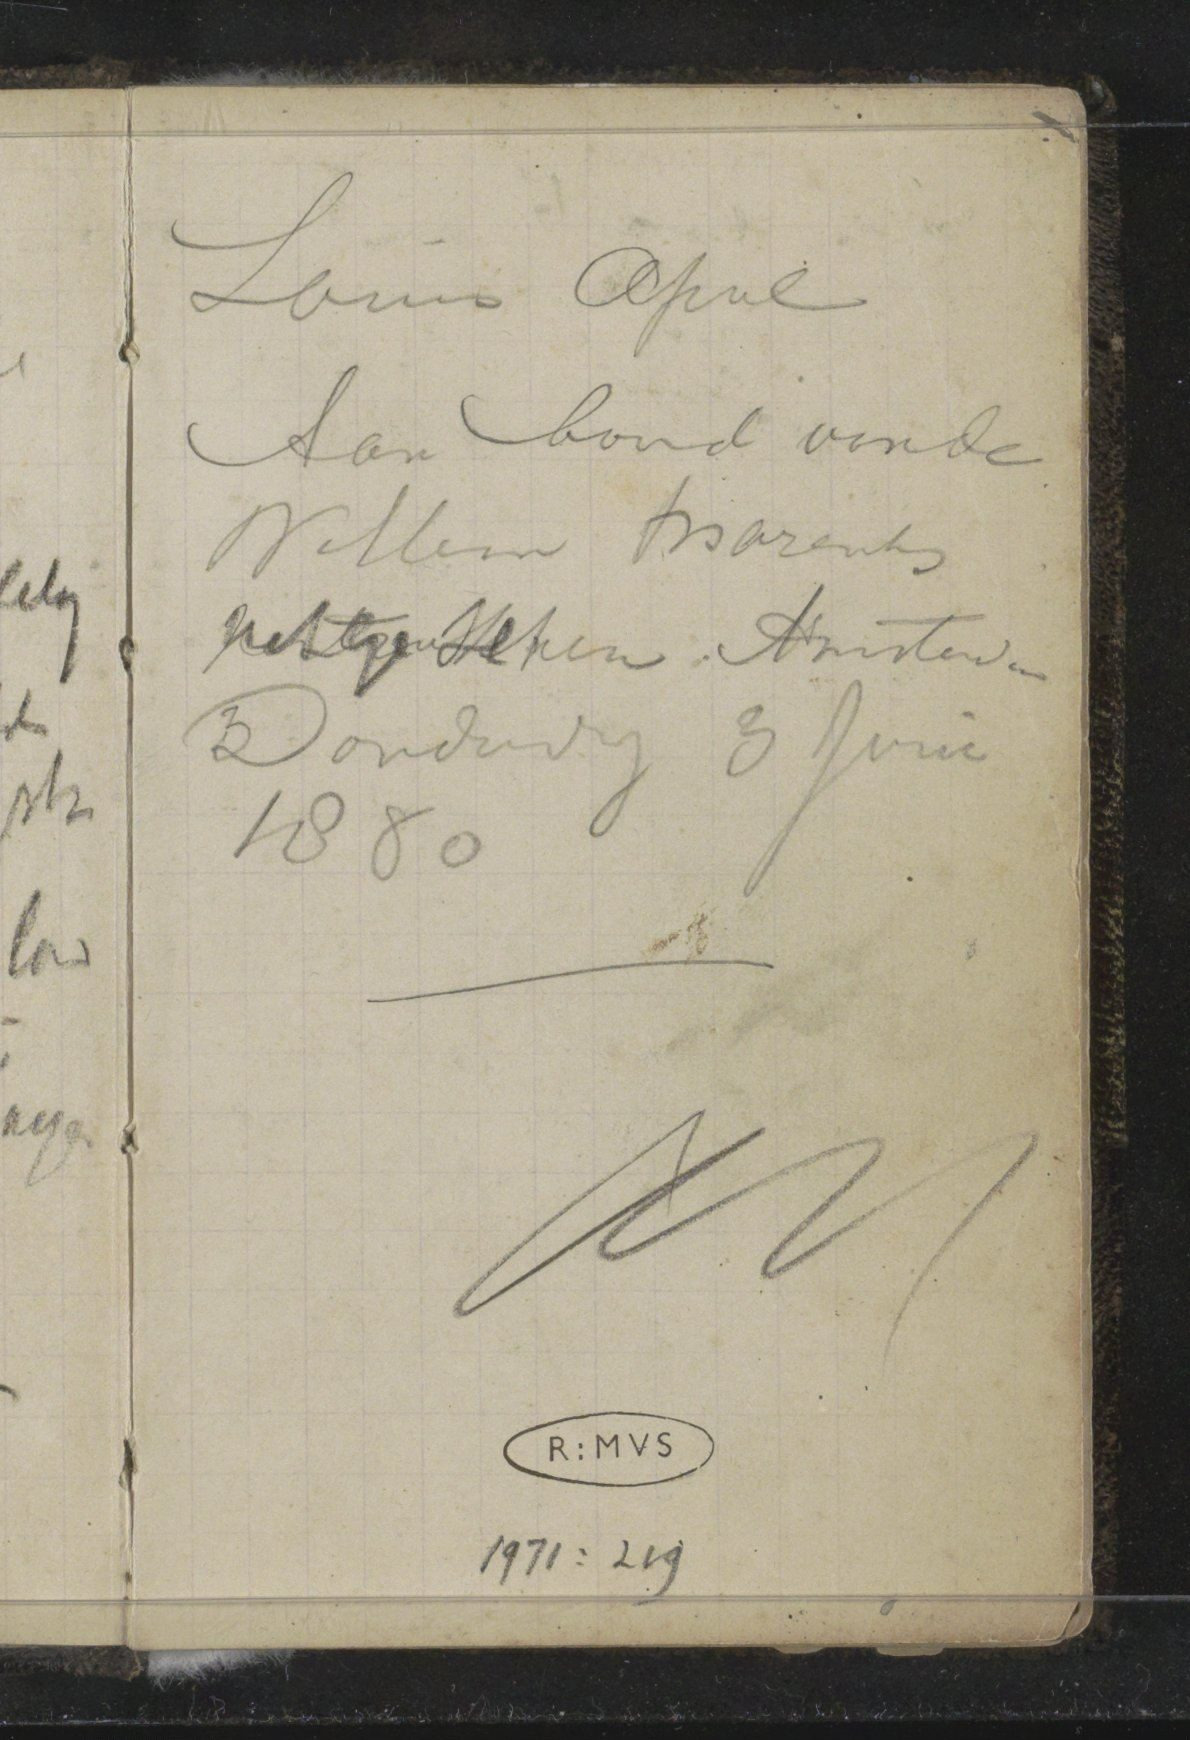 Louis Apol
Aan boord van de
Willem Barents
vertrokken Amsterdam
Donderdag 3 Juni
1880
low
R:MVS
1971: 219